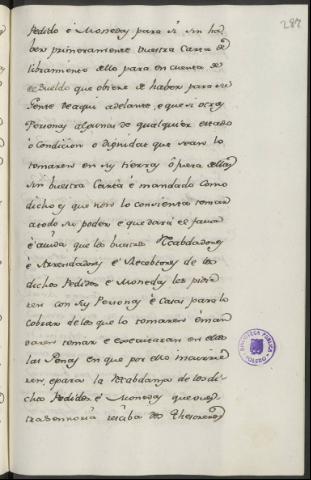 287
Pedido é Monedas para si sin ha
ber primeramente vuestra Carta de
libramiento dello para en cuenta de
el Sueldo que obiere de haber para su
Gente deaqui adelante, e que si otras
Personas algunas de qualquier estado
o Condicion o dignidat que sean lo
tomaren en sus tierras ó fuera dellas
sin buestra Carta é mandado como
dicho es que non lo consienta tomar
atodo su poder e que dará el favor
é aiuda que los buestros Recabdadores
é Arrendadores é Recebtores de los
dichos Pedidos é Monedas les pidie
ren con sus Personas é Casas para lo
Cobrar de los que lo tomaren é man
daren tomar e executaran en ellos
las Penas en que por ello incurrie
ren, e para la Recabdanza de los di
chos Pedidos é Monedas que vues
tra Sennoria resciba dos Thesoreros
BIBLIOTECA PUBLICA
TOLEDO